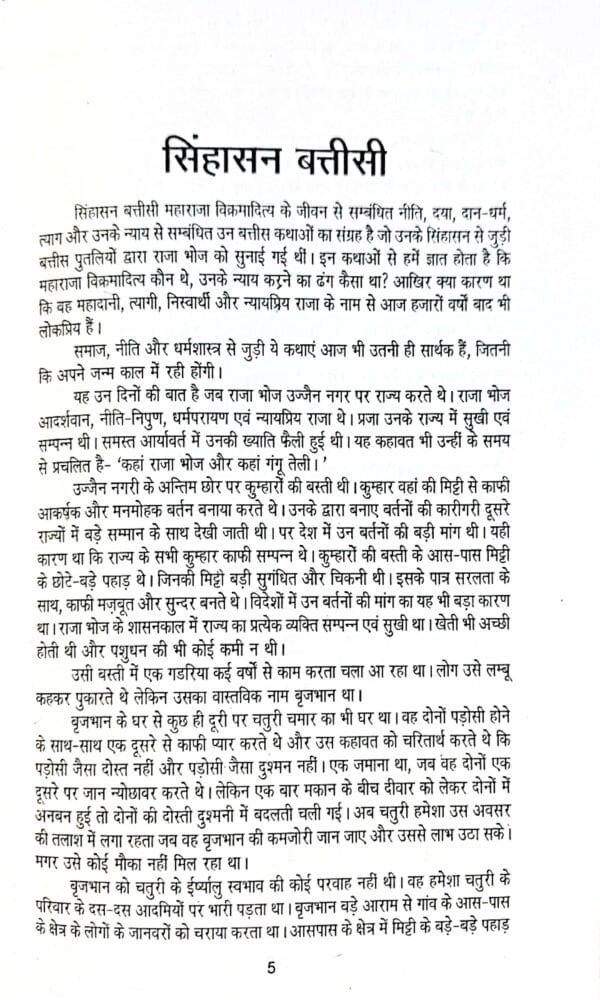 सिंहासन बत्तीसी
सिंहासन बत्तीसी महाराजा विक्रमादित्य के जीवन से सम्बंधित नीति, दया, दान-धर्म,
त्याग और उनके न्याय से सम्बंधित उन बत्तीस कथाओं का संग्रह है जो उनके सिंहासन से जुड़ी
बत्तीस पुतलियों द्वारा राजा भोज को सुनाई गई थीं। इन कथाओं से हमें ज्ञात होता है कि
महाराजा विक्रमादित्य कौन थे, उनके न्याय करने का ढंग कैसा था? आखिर क्या कारण था
कि वह महादानी, त्यागी, निस्वार्थी और न्यायप्रिय राजा के नाम से आज हजारों वर्षों बाद भी
लोकप्रिय हैं।
समाज, नीति और धर्मशास्त्र से जुड़ी ये कथाएं आज भी उतनी ही सार्थक हैं, जितनी
कि अपने जन्म काल में रही होंगी।
यह उन दिनों की बात है जब राजा भोज उज्जैन नगर पर राज्य करते थे। राजा भोज
आदर्शवान, नीति-निपुण, धर्मपरायण एवं न्यायप्रिय राजा थे। प्रजा उनके राज्य में सुखी एवं
सम्पन्न थी। समस्त आर्यावर्त में उनकी ख्याति फैली हुई थी। यह कहावत भी उन्हीं के समय
से प्रचलित है- ‘कहां राजा भोज और कहां गंगू तेली।’
उज्जैन नगरी के अन्तिम छोर पर कुम्हारों की बस्ती थी। कुम्हार वहां की मिट्टी से काफी
आकर्षक और मनमोहक बर्तन बनाया करते थे। उनके द्वारा बनाए बर्तनों की कारीगरी दूसरे
राज्यों में बड़े सम्मान के साथ देखी जाती थी। पर देश में उन बर्तनों की बड़ी मांग थी। यही
कारण था कि राज्य के सभी कुम्हार काफी सम्पन्न थे। कुम्हारों की बस्ती के आस-पास मिट्टी
के छोटे-बड़े पहाड़ थे। जिनकी मिट्टी बड़ी सुगंधित और चिकनी थी। इसके पात्र सरलता के
साथ, काफी मज़बूत और सुन्दर बनते थे। विदेशों में उन बर्तनों की मांग का यह भी बड़ा कारण
था। राजा भोज के शासनकाल में राज्य का प्रत्येक व्यक्ति सम्पन्न एवं सुखी था। खेती भी अच्छी
होती थी और पशुधन की भी कोई कमी न थी।
उसी बस्ती में एक गडरिया कई वर्षों से काम करता चला आ रहा था। लोग उसे लम्बू
कहकर पुकारते थे लेकिन उसका वास्तविक नाम बृजभान था।
बृजभान के घर से कुछ ही दूरी पर चतुरी चमार का भी घर था। वह दोनों पड़ोसी होने
के साथ-साथ एक दूसरे से काफी प्यार करते थे और उस कहावत को चरितार्थ करते थे कि
पड़ोसी जैसा दोस्त नहीं और पड़ोसी जैसा दुश्मन नहीं। एक जमाना था, जब वह दोनों एक
दूसरे पर जान न्योछावर करते थे। लेकिन एक बार मकान के बीच दीवार को लेकर दोनों में
अनबन हुई तो दोनों की दोस्ती दुश्मनी में बदलती चली गई। अब चतुरी हमेशा उस अवसर
की तलाश में लगा रहता जब वह बृजभान की कमजोरी जान जाए और उससे लाभ उठा सके।
मगर उसे कोई मौका नहीं मिल रहा था।
बृजभान को चतुरी के ईर्ष्यालु स्वभाव की कोई परवाह नहीं थी। वह हमेशा चतुरी के
परिवार के दस-दस आदमियों पर भारी पड़ता था। बृजभान बड़े आराम से गांव के आस-पास
के क्षेत्र के लोगों के जानवरों को चराया करता था। आसपास के क्षेत्र में मिट्टी के बड़े-बड़े पहाड़
5